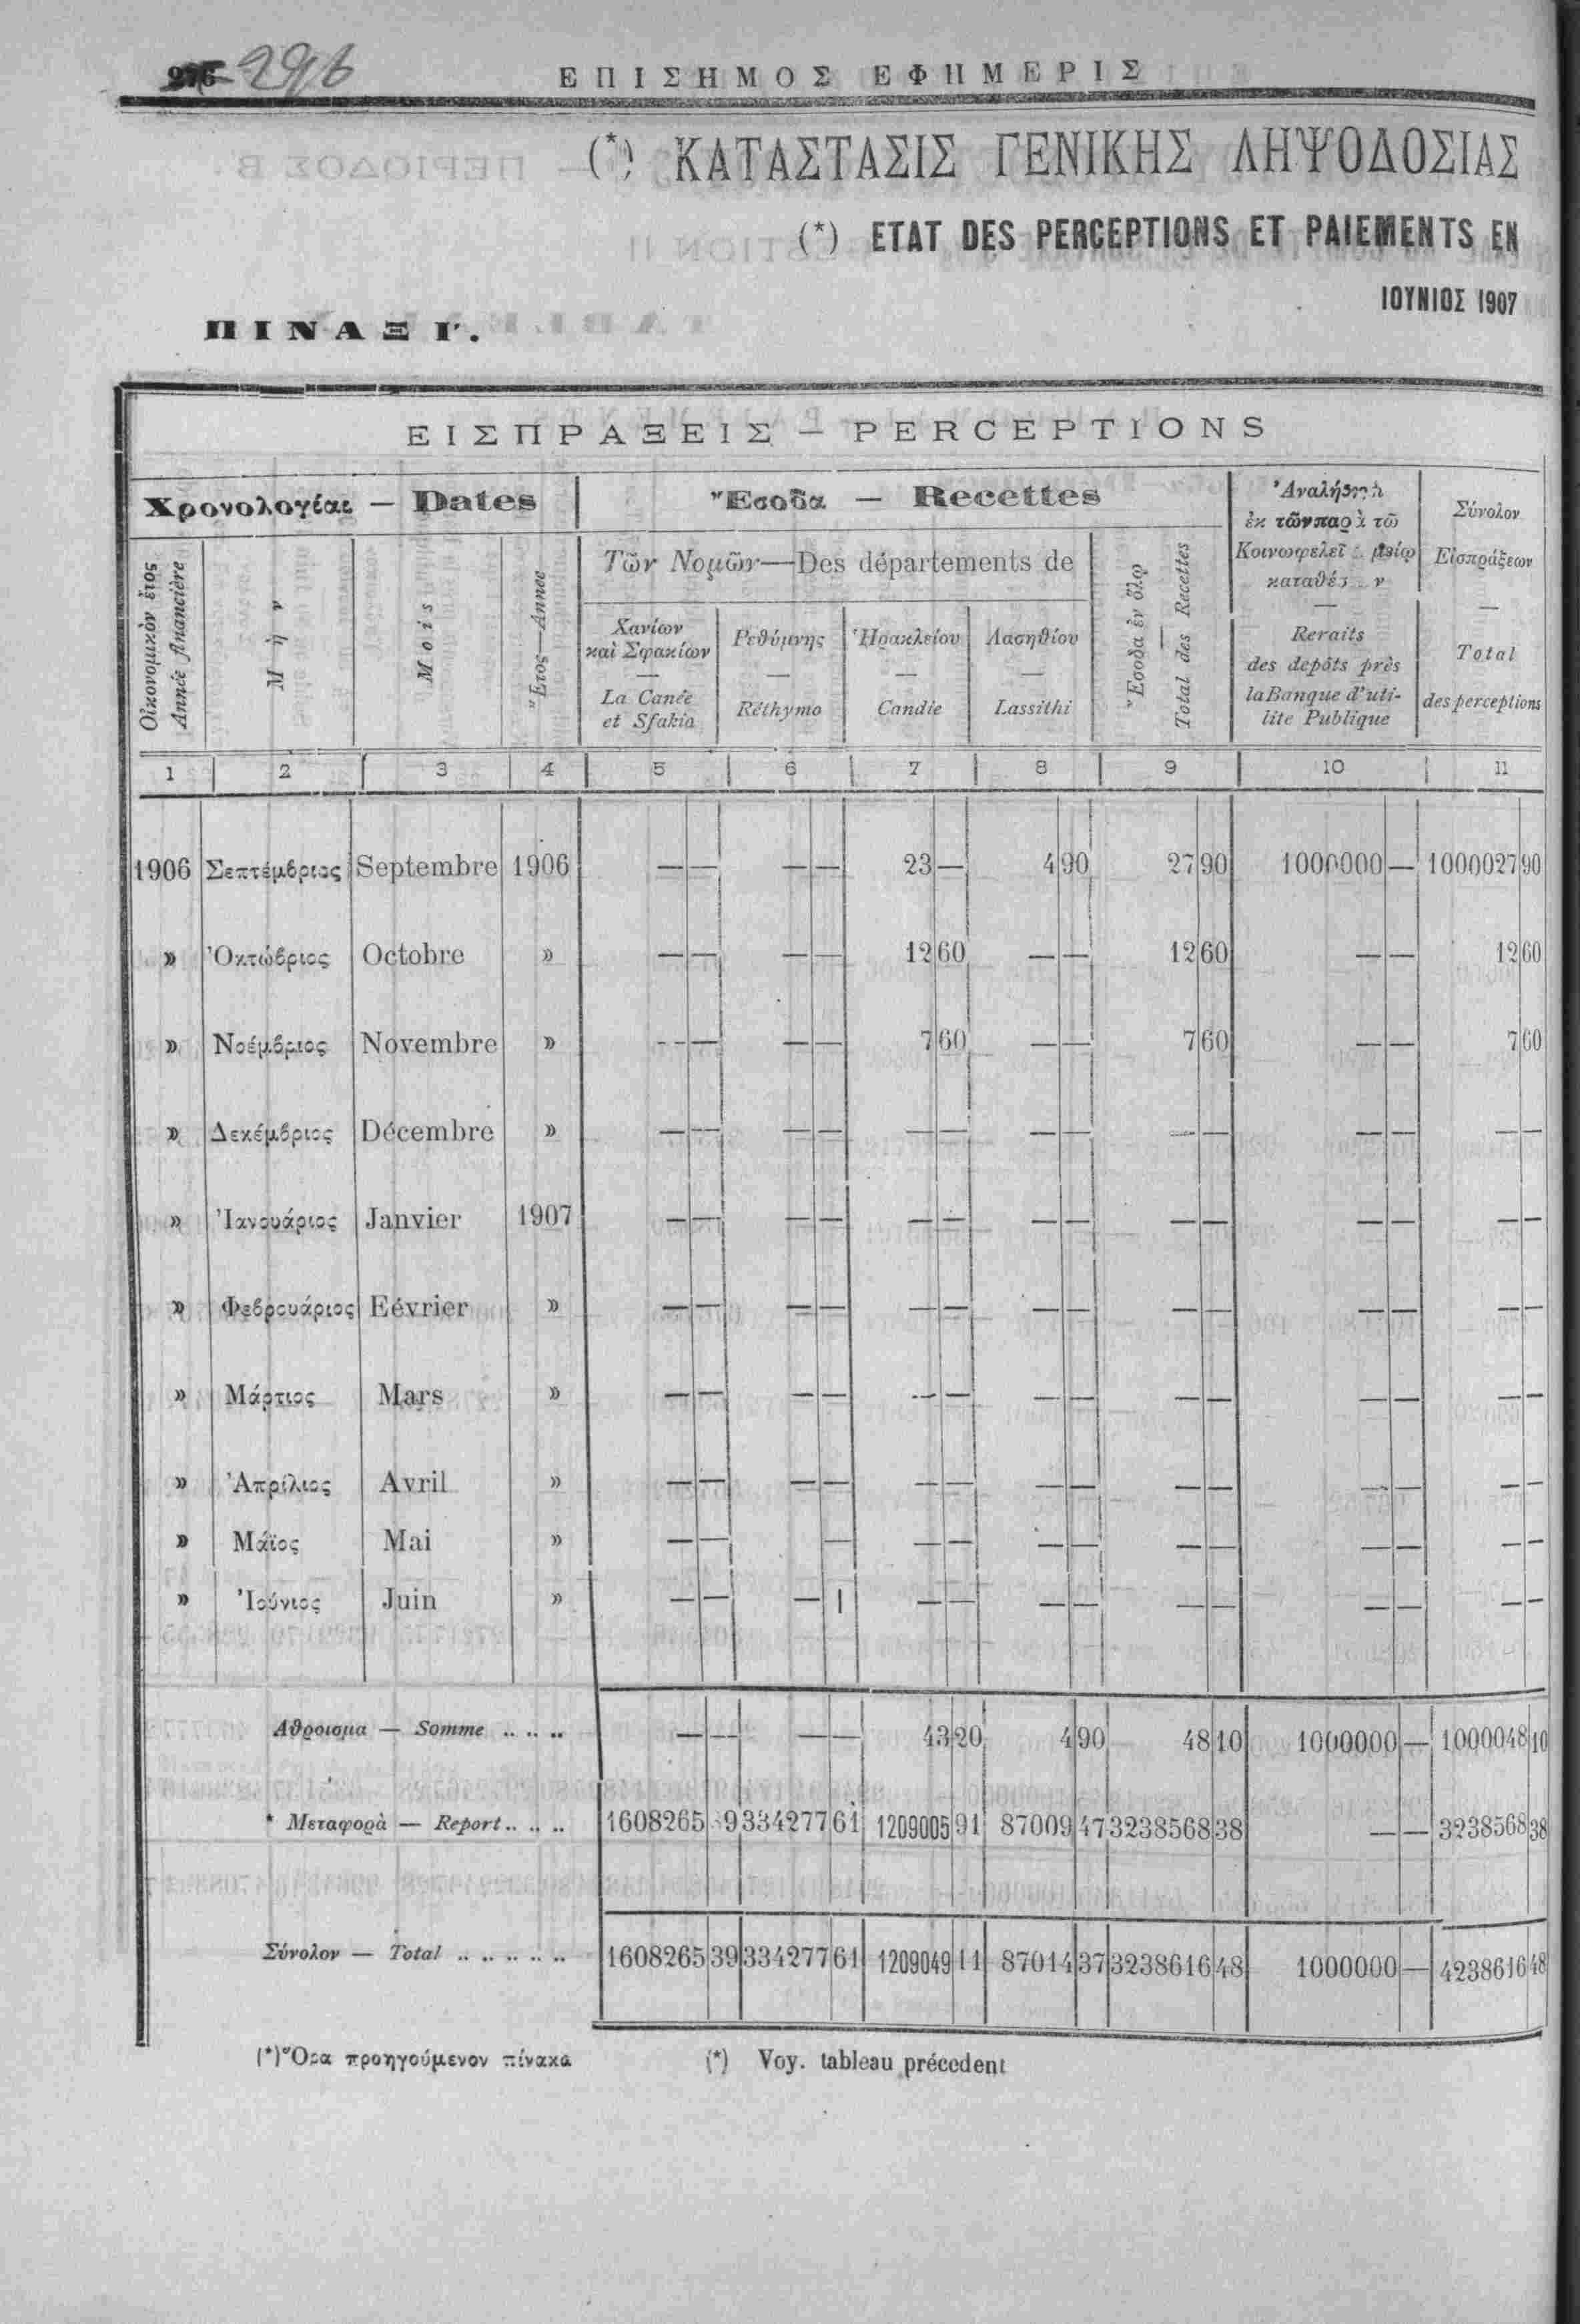 276 296
ΕΠΙΣΗΜΟΣ ΕΦΗΜΕΡΙΣ
(*) ΚΑΤΑΣΤΑΣΙΣ ΓΕΝΙΚΗΣ ΛΗΨΟΔΟΣΙΑΣ
(*) ETAT DES PERCEPTIONS ET PAIEMENTS EN
ΙΟΥΝΙΟΣ 1907
ΠΙΝΑΞ Γ'.
ΕΙΣΠΡΑΞΕΙΣ — PERCEPTIONS
Χρονολογίαι — Dates
Ἔσοδα — Recettes
Τῶν Νομῶν—Des départements de
Οἰκονομικὸν ἔτος
Année financière
Μὴν
Mois
Ἔτος—Année
Χανίων
καὶ Σφακίων
—
La Canée
et Sfakia
Ρεθύμνης
—
Réthymo
Ἡρακλείου
—
Candie
Λασηθίου
—
Lassithi
Ἔσοδα ἐν ὅλῳ
—
Total des Recettes
ἐκ τῶν παρὰ τῶ
Κοινωφελεῖ
—
Reraits
des depôts près
la Banque d'uti-
lite Publique
Σύνολον
Εἰσπράξεων
—
Total
des perceptions
1 2 3 4 5 6 7 8 9 10 11
1906 Σεπτέμβριος Septembre 1906 — — — — 23 — 4 90 27 90 1000000 — 1000027 90
» Ὀκτώβριος Octobre » — — — — 12 60 — — 12 60 — — 12 60
» Νοέμβριος Novembre » — — — — 7 60 — — 7 60 — — 7 60
» Δεκέμβριος Décembre » — — — — — — — — — — — — — —
» Ἰανουάριος Janvier 1907 — — — — — — — — — — — — — —
» Φεβρουάριος Eévrier » — — — — — — — — — — — — — —
» Μάρτιος Mars » — — — — — — — — — — — — — —
» Ἀπρίλιος Avril » — — — — — — — — — — — — — —
» Μάϊος Mai » — — — — — — — — — — — — —
» Ἰούνιος Juin » — — — — — — — — — — — — —
Αθροισμα — Somme .. .. .. — — — — 43 20 4 90 48 10 1000000 — 1000048 10
* Μεταφορὰ — Report .. .. .. 1608265 39 334277 61 1209005 91 87009 47 3238568 38 — — 3238568 38
Σύνολον — Total .. .. .. .. .. 1608265 39 334277 61 1209049 11 87014 37 3238616 48 1000000 — 4238616 48
(*) Ὅρα προηγούμενον πίνακα
(*) Voy. tableau précedent